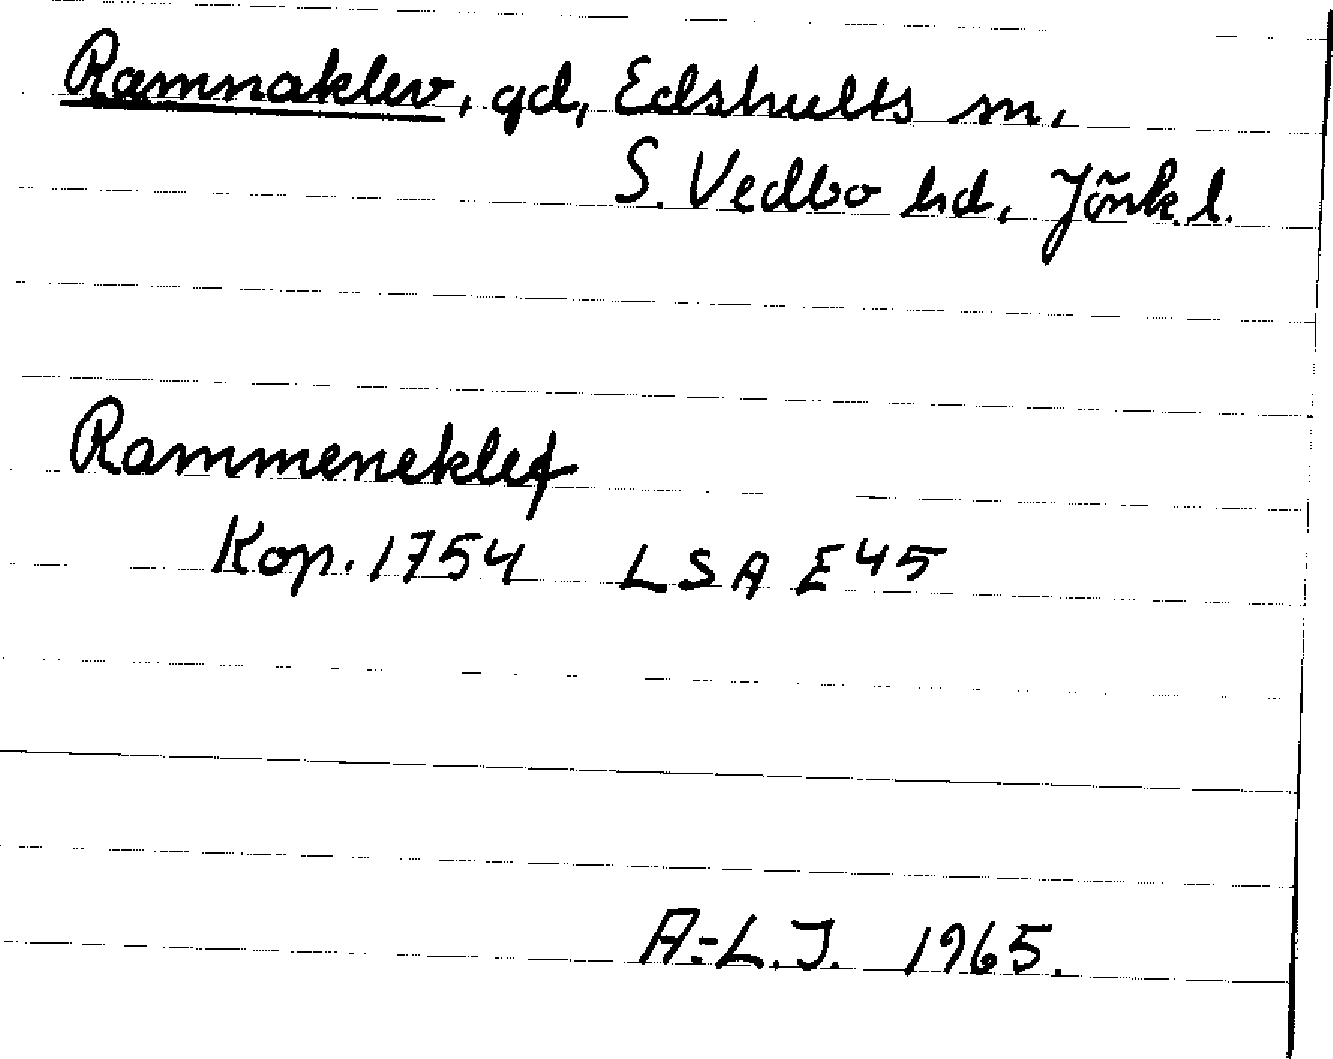 Ramnaklev, gd, Edshults sn,
S. Vedbo hd, Jönk. l.
Rammeneklef
Kop. 1754 LSA E45
A.-L.J. 1965.